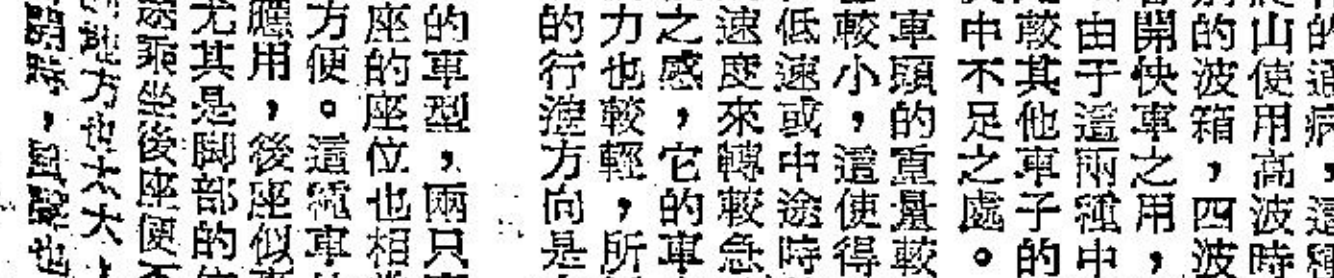 的通病，這種
爬山使用高波時
的波箱，四波
開快車之用，
由于這兩種中
較其他車子的
中不足之處。
車頭的重量較
較小，這使得
低速或中途時
速度來轉較急
之感，它的車
力也較輕，所
的行走方向是
的車型，兩只
座的座位也相
方便。這種車
應用，後座似
尤其是脚部的
乘坐後座便
地方也太大
，